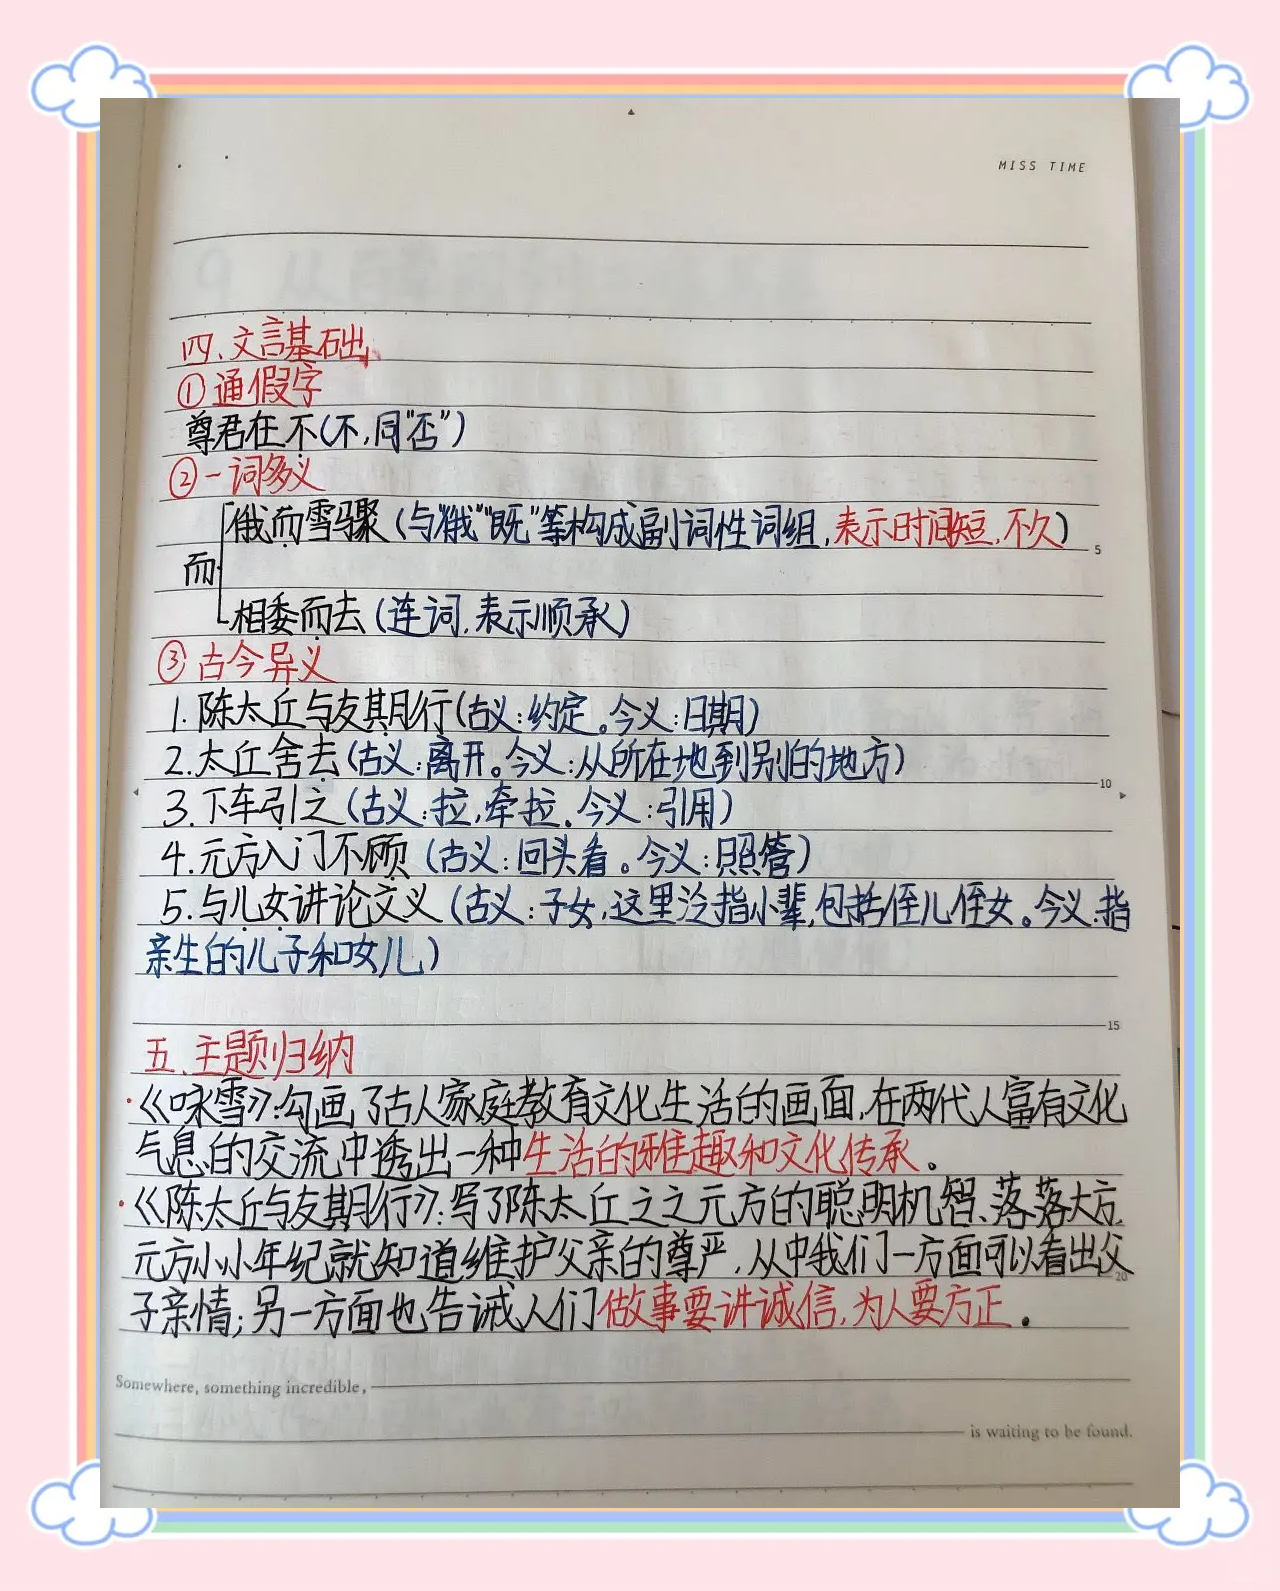 MISS TIME
四、文言基础
①通假字
尊君在不(不,同"否")
②一词多义
俄而雪骤(与"俄""既"等构成副词性词组,表示时间短,不久)
5
而
相委而去(连词,表示顺承)
③古今异义
1.陈太丘与友其月行(古义:约定。今义:日期)
2.太丘舍去(古义:离开。今义:从所在地到别的地方)
10
3.下车引之(古义:拉,牵拉。今义:引用)
4.元方入门不顾(古义:回头看。今义:照管)
5.与儿女讲论文义(古义:子女,这里泛指小辈,包括侄儿侄女。今义:指
亲生的儿子和女儿)
15
五、主题归纳
·《咏雪》:勾画了古人家庭教育文化生活的画面,在两代人富有文化
气息的交流中透出一种生活的雅趣和文化传承。
·《陈太丘与友期行》:写了陈太丘之之元方的聪明机智、落落大方,
元方小小年纪就知道维护父亲的尊严,从中我们一方面可以看出父
20
子亲情;另一方面也告诫人们做事要讲诚信,为人要方正。
Somewhere, something incredible,
is waiting to be found.